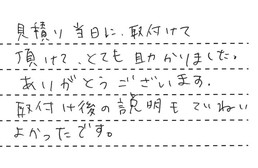 見積り当日に、取付けて
頂けて、とても助かりました。
ありがとうございます。
取付け後の説明もていねい
よかったです。